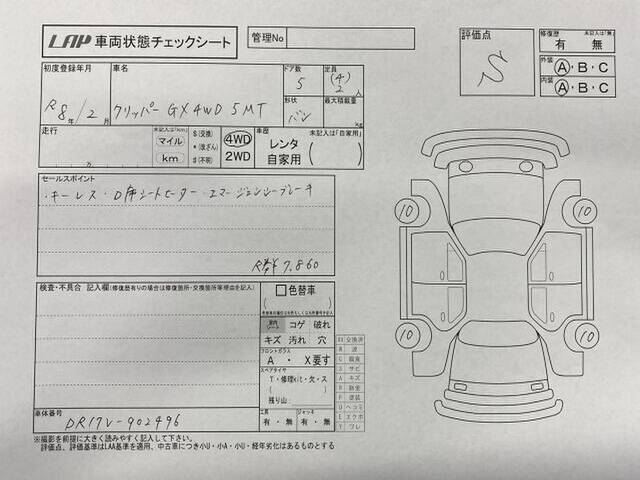 LAP 車両状態チェックシート
管理No
評価点
S
修復歴 未記入は「無」
有 ・ 無
外装 A・B・C
内装 A・B・C
初度登録年月
R8年/2月
車名
クリッパー GX 4WD 5MT
ドア数
5
定員
(4)
2人
形状
バン
最大積載量
kg
走行 未記入は「km」
万
マイル
km
$(交換)
*(改ざん)
#(不明)
4WD
2WD
車歴 未記入は「自家用」
レンタ
自家用
セールスポイント
・キーレス ・D席シートヒーター ・エマージェンシーブレーキ
R券¥7,860
検査・不具合 記入欄(修復歴有りの場合は修復箇所・交換箇所等程度を記入)
色替車
コゲ 破れ
キズ 汚れ 穴
フロントガラス
A ・ X要す
スペアタイヤ
T・修理kit・欠・ス
残り山:
工具
有・無
ジャッキ
有・無
XX 交換済
W 波
C 腐食
S サビ
A キズ
P 塗装
U ヘコミ
E エクボ
Y ワレ
10
10
10
10
車体番号
DR17V-902496
※撮影を前提に大きく読みやすく記入して下さい。
評価点、評価基準はLAA基準を適用、中古車につき小U・小A・小U・経年劣化はあるものとする